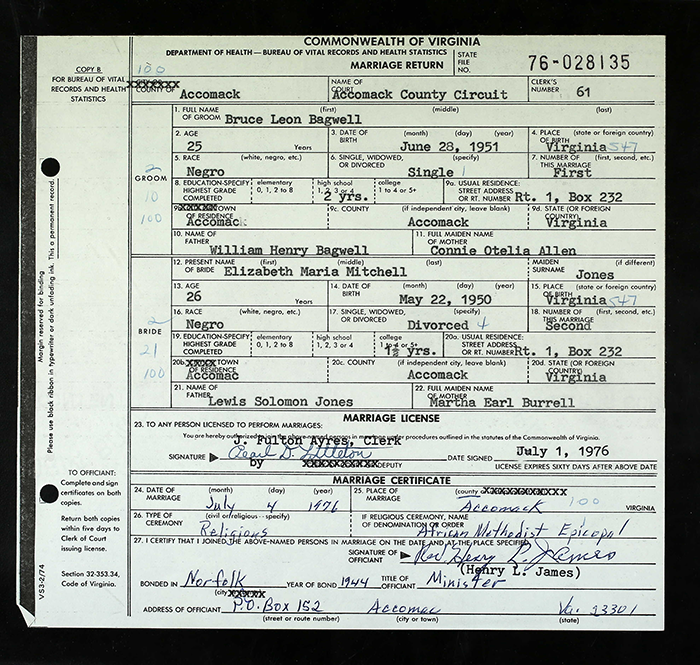 COMMONWEALTH OF VIRGINIA
DEPARTMENT OF HEALTH — BUREAU OF VITAL RECORDS AND HEALTH STATISTICS
MARRIAGE RETURN
STATE FILE NO. 76-028135
COPY B
FOR BUREAU OF VITAL RECORDS AND HEALTH STATISTICS
100
COUNTY OF Accomack
NAME OF COURT Accomack County Circuit
CLERK'S NUMBER 61
GROOM
2
10
100
1. FULL NAME OF GROOM (first) (middle) (last)
Bruce Leon Bagwell
2. AGE 25 Years
3. DATE OF BIRTH (month) (day) (year) June 28, 1951
4. PLACE OF BIRTH (state or foreign country) Virginia 547
5. RACE (white, negro, etc.) Negro
6. SINGLE, WIDOWED, OR DIVORCED (specify) Single 1
7. NUMBER OF THIS MARRIAGE (first, second, etc.) First
8. EDUCATION-SPECIFY HIGHEST GRADE COMPLETED elementary 0, 1, 2 to 8 high school 1, 2, 3 or 4 2 yrs. college 1 to 4 or 5+
9a. USUAL RESIDENCE: STREET ADDRESS OR RT. NUMBER Rt. 1, Box 232
9b. TOWN OF RESIDENCE Accomack
9c. COUNTY (if independent city, leave blank) Accomack
9d. STATE (OR FOREIGN COUNTRY) Virginia
10. NAME OF FATHER William Henry Bagwell
11. FULL MAIDEN NAME OF MOTHER Connie Otelia Allen
BRIDE
2
21
100
12. PRESENT NAME OF BRIDE (first) (middle) (last) Elizabeth Maria Mitchell
MAIDEN SURNAME (if different) Jones
13. AGE 26 Years
14. DATE OF BIRTH (month) (day) (year) May 22, 1950
15. PLACE OF BIRTH (state or foreign country) Virginia 547
16. RACE (white, negro, etc.) Negro
17. SINGLE, WIDOWED, OR DIVORCED (specify) Divorced 4
18. NUMBER OF THIS MARRIAGE (first, second, etc.) Second
19. EDUCATION-SPECIFY HIGHEST GRADE COMPLETED elementary 0, 1, 2 to 8 high school 1, 2, 3 or 4 college 1 to 4 or 5+ 1½ yrs.
20a. USUAL RESIDENCE: STREET ADDRESS OR RT. NUMBER Rt. 1, Box 232
20b. TOWN OF RESIDENCE Accomac
20c. COUNTY (if independent city, leave blank) Accomack
20d. STATE (OR FOREIGN COUNTRY) Virginia
21. NAME OF FATHER Lewis Solomon Jones
22. FULL MAIDEN NAME OF MOTHER Martha Earl Burrell
MARRIAGE LICENSE
23. TO ANY PERSON LICENSED TO PERFORM MARRIAGES:
You are hereby authorized to join the above-named persons in marriage under procedures outlined in the statutes of the Commonwealth of Virginia.
J. Fulton Ayres, Clerk
SIGNATURE Pearl D. Littleton
by DEPUTY
DATE SIGNED July 1, 1976
LICENSE EXPIRES SIXTY DAYS AFTER ABOVE DATE
MARRIAGE CERTIFICATE
24. DATE OF MARRIAGE (month) (day) (year) July 4 1976
25. PLACE OF MARRIAGE (county or Accomack 100 VIRGINIA
26. TYPE OF CEREMONY (civil or religious - specify) Religious
IF RELIGIOUS CEREMONY, NAME OF DENOMINATION OR ORDER African Methodist Epicopal
27. I CERTIFY THAT I JOINED THE ABOVE-NAMED PERSONS IN MARRIAGE ON THE DATE AND AT THE PLACE SPECIFIED.
SIGNATURE OF OFFICIANT Rev Henry L. James
(Henry L. James)
BONDED IN Norfolk (city YEAR OF BOND 1944 TITLE OF OFFICIANT Minister
ADDRESS OF OFFICIANT P.O. Box 152 Accomac Va. 23301
(street or route number) (city or town) (state)
Margin reserved for binding
Please use black ribbon in typewriter or dark unfading ink. This is a permanent record.
TO OFFICIANT:
Complete and sign certificates on both copies.
Return both copies within five days to Clerk of Court issuing license.
Section 32-353.34, Code of Virginia.
VS3-2/74